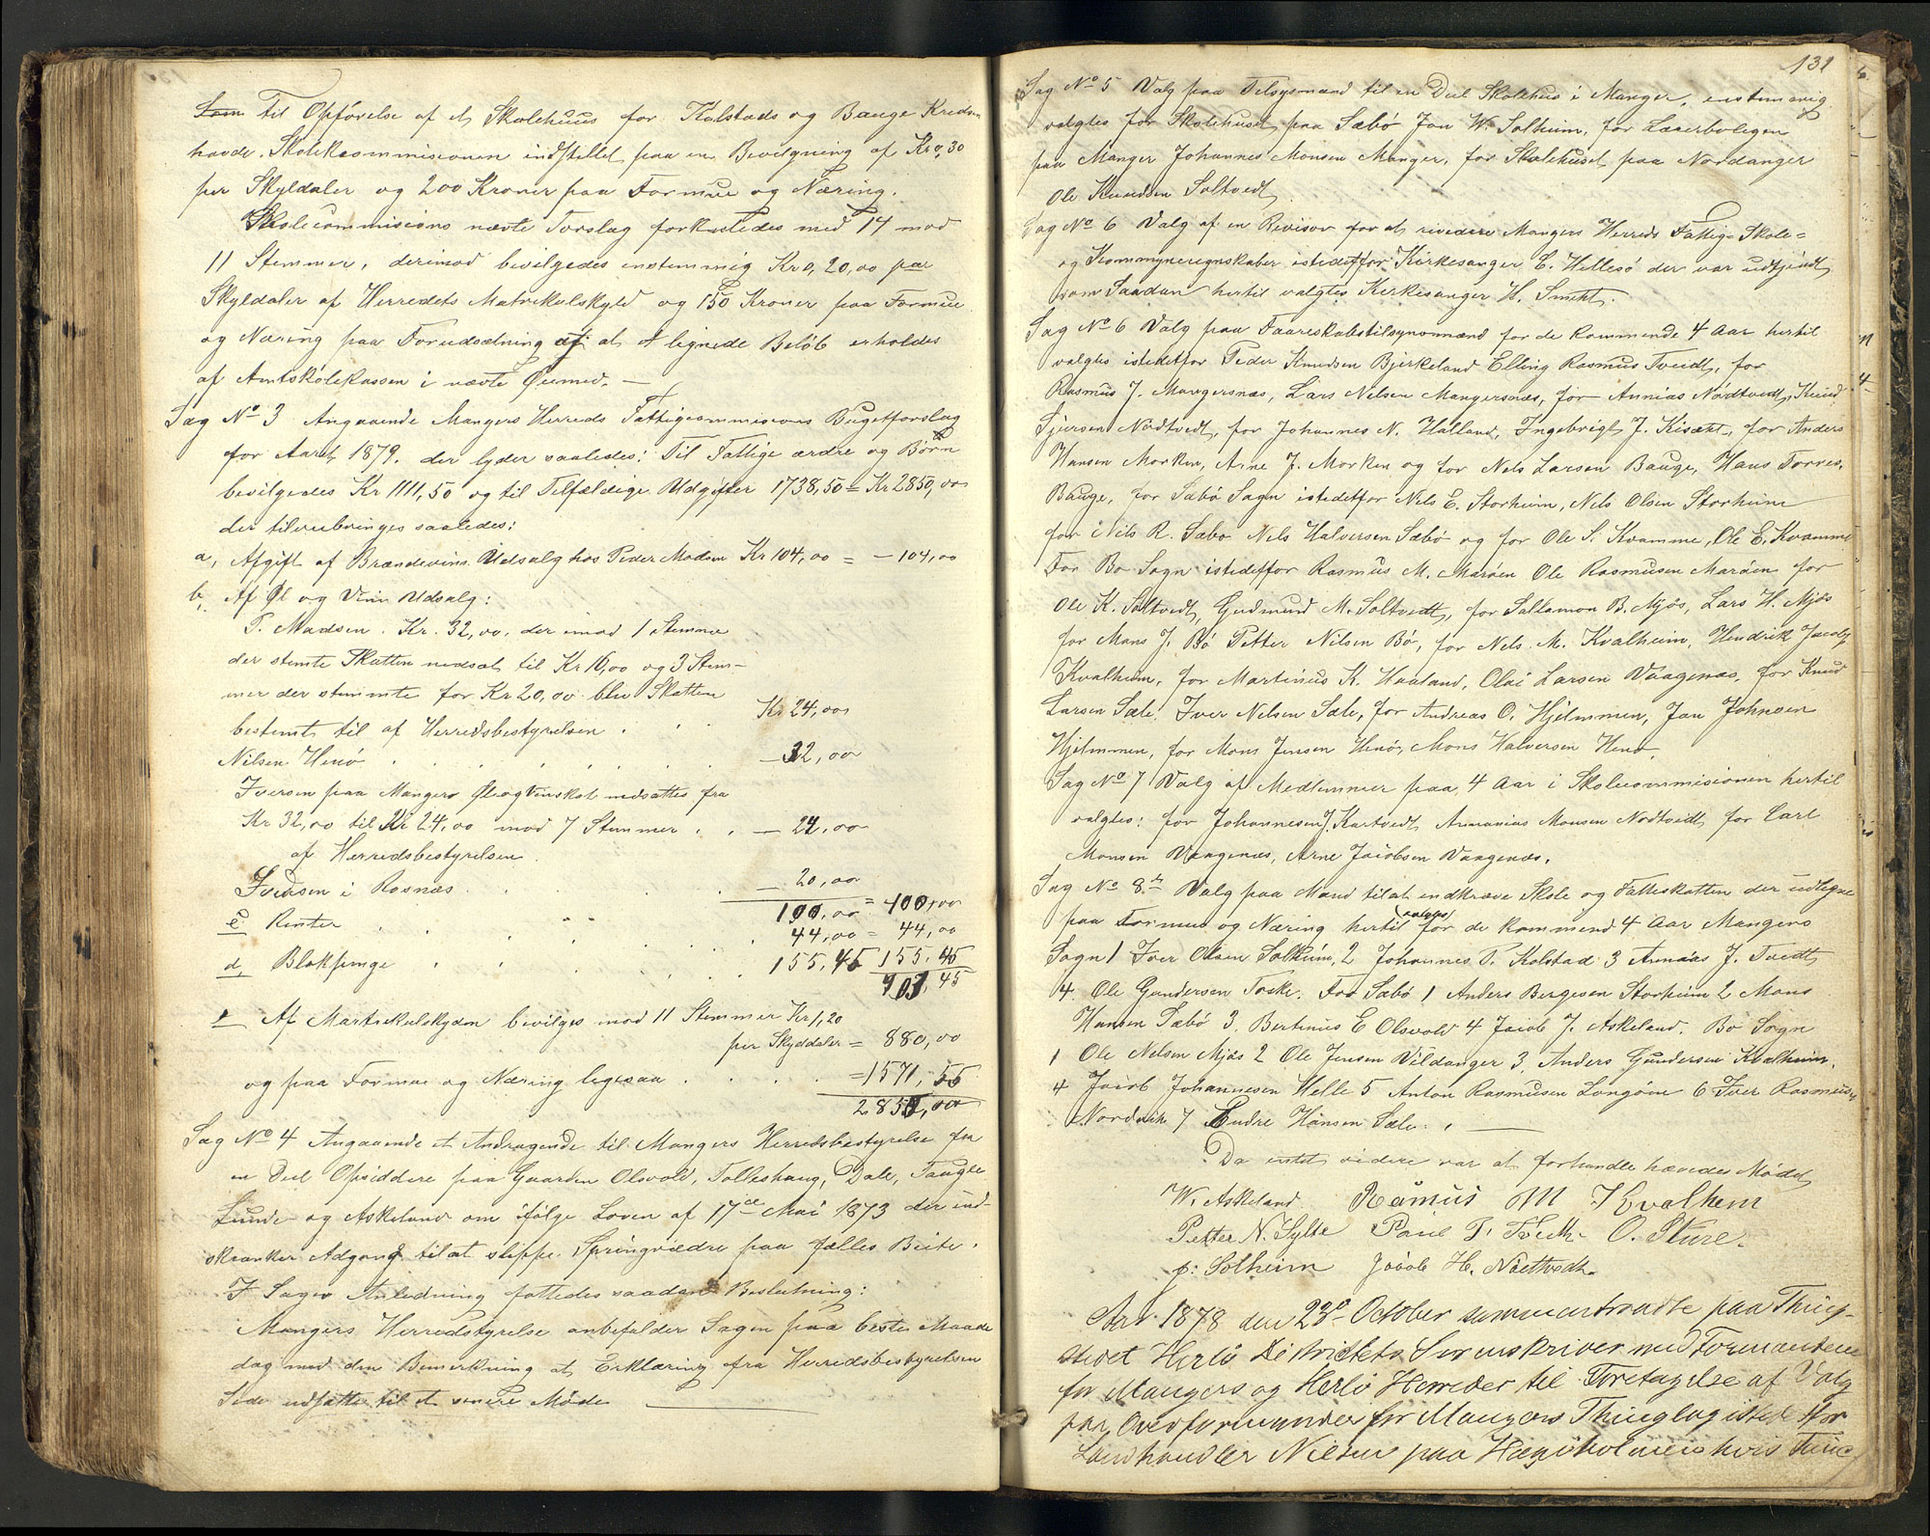 Som til Opförelse af et Skolehuus for Kolstads og Bauge Kreds
havde Skolekommissionen indstillet paa en Bevilgning af Kr 0,30
per Skyldaler og 200 Kroner paa Formue og Næring.
Skolecommisions nævte Forslag forkastedes med 14 mod
11 Stemmer, derimod bevilgedes enstemmig Kr 0,20,00 par
Skyldaler af Herredets Matrikulskyld og 150 Kroner paa Formue
og Næring paa Forudsætning af at et lignede Belöb erholdes
af Amtskolekassen i nævte Öiemed. —
Sag No 3 Angaaende Mangers Herreds Fattigcommisions Bugetforslag
for Aaret 1879. der lyder saaledes: Til Fattige ældre og Börn
bevilgedes Kr 1111,50 og til Tilfældige Udgifter 1738,50 = Kr 2850,00
der tilveibringes saaledes:
a, Afgift af Brændevins Udsalg hos Peder Madsen Kr 104,00 = — 104,00
b, Af Øl og Vin Udsalg:
P. Madsen. Kr. 32,00, der imod 1 Stemme
der stemte Skatten nedsat til Kr 16,00 og 3 Stem-
mer der stemmte for Kr 20,00 blev Skatten
bestemt til af Herredsbestyrelsen . . Kr 24,00
Nilsen Henö . . . . . . — 32,00
Iversen paa Manger Öl og Vinskat nedsattes fra
Kr 32,00 til Kr 24,00 mod 7 Stemmer . . — 24,00
af Herredsbestyrelsen.
Iversen i Rosnæs . . . — 20,00
100,00 = 100,00
c Renter . . . . 44,00 = 44,00
d, Blokpenge . . . . 155,45 155,45
403,45
e Af Martrikulskylden bevilges mod 11 Stemmer Kr 1,20
per Skyddaler = 880,00
og paa Formue og Næring ligesaa . . . . = 1571,55
2850,00
Sag No 4 Angaaende et Andragende til Mangers Herredsbestyrelse fra
en Deel Opsiddere paa Gaarden Olsvold, Tolleshaug, Dale, Taugle
Lunde og Askeland om ifölge Loven af 17de Mai 1873 der ind-
skrænker Adgang til at slippe Springvædre paa fælles Beite.
I Sagens Anledning fattedes saadan Beslutning:
Mangers Herredstyrelse anbefalder Sagen paa beste Maade
dog med den Bemerkning at Erklæring fra Herredsbestyrelsen
Side udsættes til et senere Möde
131
Sag No 5 Valg paa Tilsynsmænd til en Deel Skolehus i Manger, enstemmig
valgtes for Skolehuset paa Sæbö Jon W. Solheim, for Lærerboligen
paa Manger Johannes Monsen Manger, for Skolehuset paa Nordanger
Ole Knudsen Soltvedt
Sag No 6 Valg af en Revisor for at rividere Mangers Herreds Fattig- Skole-
og Kommuneregnskaber istedetfor Kirkesanger E. Hellesö der var udtjendt
som Saadan hertil valgtes Kirkesanger H. Smith.
Sag No 6 Valg paa Faareskabstilsynsmænd for de kommende 4 Aar hertil
valgtes istedetfor Peder Knudsen Bjerkeland Elling Rasmus Tveidt, for
Rasmus J. Mangersnæs, Lars Nilsen Mangersnæs, for Annias Nödtvedt, Knud
Sjursen Nödtvedt, for Johannes N. Halland, Ingebrigt J. Kisæth, for Anders
Hansen Morken, Arne J. Morken og for Nels Larsen Bauge, Hans Torres.
Bauge, for Sæbö Sogn istedetfor Nils E. Storheim, Nels Olsen Storheim
for Nils R. Sæbö Nils Halversen Sæbö og for Ole S. Kvamme, Ole E. Kvamme
For Bo Sogn istedetfor Rasmus M. Maröen Ole Rasmusen Maröen for
Ole K. Soltvedt, Gudmund M. Soltvedt, for Sallomon B. Mjös, Lars H. Mjös
for Mons J. Bö Petter Nilsen Bö, for Nels M. Kvalheim, Hendrik Jacob
Kvalheim, for Martinus K. Haaland, Olai Larsen Vaagenæs, for Knud
Larsen Sæle, Iver Nelsen Sæle, for Andreas O. Hjelmmen, Jon Johnsen
Hjelmmen, for Mons Jensen Henö, Mons Halversen Henö
Sag No 7 Valg af Medlemmer paa 4 Aar i Skolecommisionen hertil
valgtes: for Johannesen J. Kartvedt Annanias Monsen Nodtvedt for Carl
Monsen Vaagenæs, Arne Jacobsen Vaagenæs.
Sag No 8de Valg paa Mænd til at indkræve Skole og Fatteskatten der udlignes
paa Formue og Næring hertil valgtes for de kommend 4 Aar Mangers
Sogn 1 Iver Olsen Solheim, 2 Johannes P. Kolstad 3 Annaas J. Tvedt
4. Ole Gundersen Toske. For Sæbö 1 Anders Bergesen Storheim 2 Mons
Hansen Sæbö 3. Bertinus E Olsvold 4 Jacob J. Askeland. Bo Sogn
1 Ole Nelsen Mjös 2 Ole Jensen Vildanger 3, Anders Gundersen Kvalheim,
4 Jacob Johannesen Helle 5 Anton Rasmusen Longöen 6 Iver Rasmusen
Nordvik 7 Endre Hansen Sæle.
Da intet videre var at forhandle hævedes Mödet
W. Askeland Rasmus M Kvalhem
Petter N. Sylte Paul P. Tvedt O. Sture.
J: Solheim Jacob H. Nöttvedt
Aar 1878 den 23de October sammentraadte paa Thing-
stedet Herlö Distriktets Sorenskriver med Formændene
for Mangers og Herlö Herreder til Foretagelse af Valg
paa Overformynder for Mangers Thinglag istedetfor
Landhandler Nilsen paa Hægöholmen hvis Thin